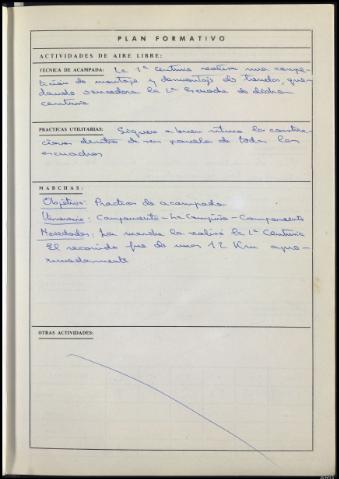 PLAN FORMATIVO
ACTIVIDADES DE AIRE LIBRE:
TECNICA DE ACAMPADA: La 1ª Centuria realizó una compe-
tición de montaje y desmontaje de tiendas, que-
dando vencedora la 1ª Escuadra de dicha
centuria
PRACTICAS UTILITARIAS: Siguen a buen ritmo las construc-
ciones dentro de sus parcelas de todas las
escuadras
MARCHAS:
Objetivo: Practicas de acampada
Itinerario: Campamento - La Campiña - Campamento
Novedades: La marcha la realizó la 1ª Centuria
El recorrido fue de unos 12 Km apro-
ximadamente
OTRAS ACTIVIDADES: